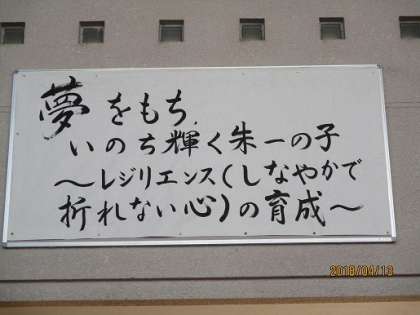 夢をもち
いのち輝く朱一の子
～レジリエンス(しなやかで
折れない心)の育成～
2018/04/13